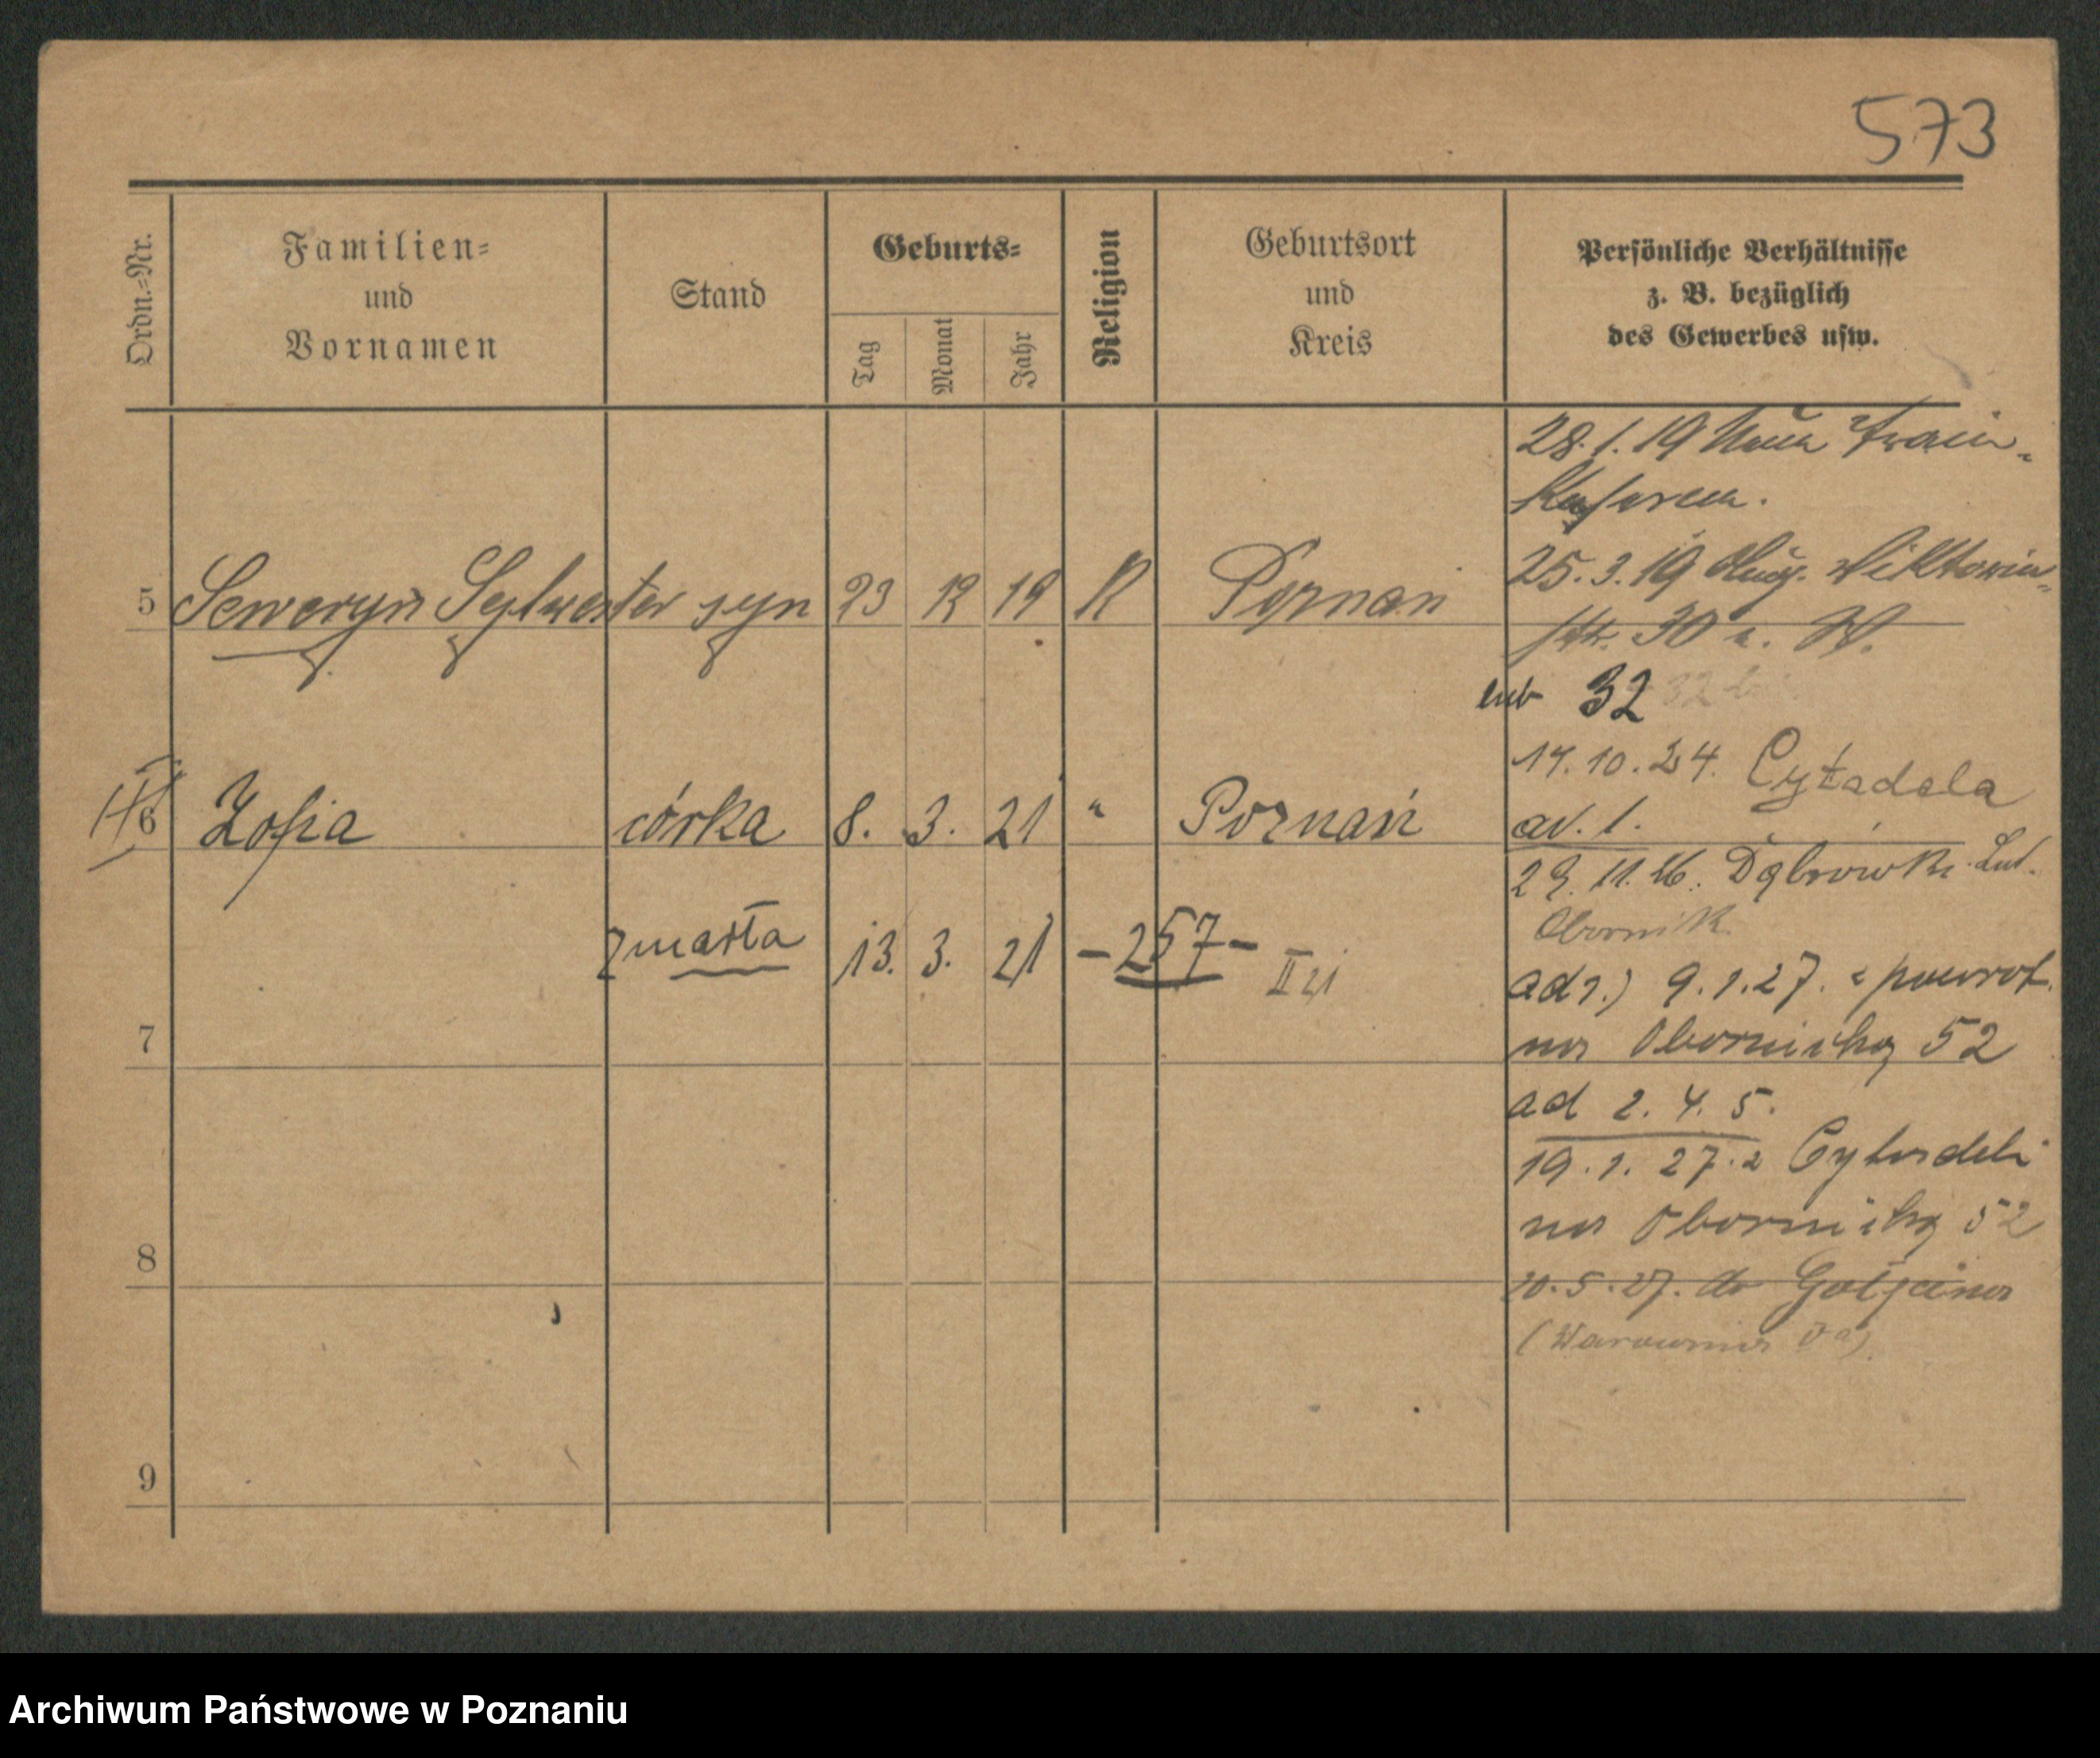 573
Ordn.-Nr.
Familien-
und
Vornamen
Stand
Geburts-
Tag
Monat
Jahr
Religion
Geburtsort
und
Kreis
Persönliche Verhältnisse
z. B. bezüglich
des Gewerbes usw.
28.1.19 Train-
25.3.19
5 Seweryn Sylwester syn 23 12 19 R Poznań
30 u. W.
lub 32
17.10.24. Cytadela
6 Zofia córka 8. 3. 21 " Poznań
29.11.26. Dąbrówka Lud.
Obornik
zmarła 13. 3. 21 -257- II 21
ad 1.) 9.1.27. z powrot.
na Obornicką 52
7
ad 2. 4. 5.
19.1.27. z Cytadeli
na Obornicką 52
8
20.5.27. do Golęcina
9
Archiwum Państwowe w Poznaniu